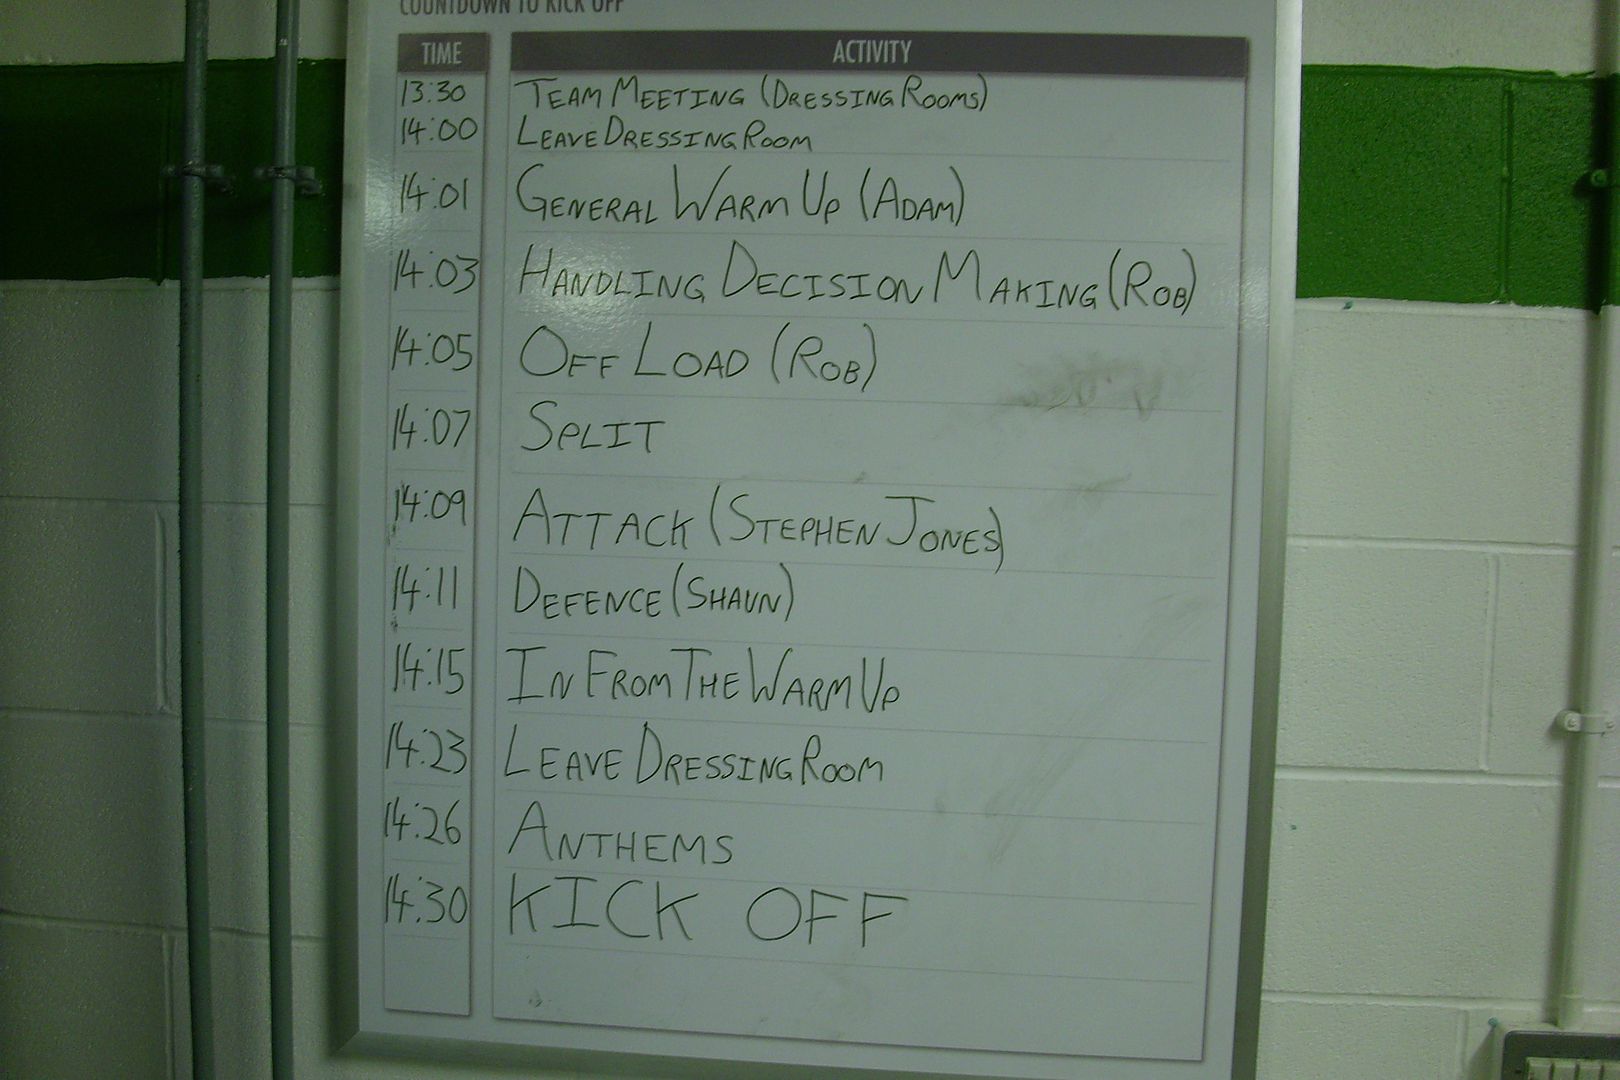 COUNTDOWN TO KICK OFF
TIME ACTIVITY
13:30 TEAM MEETING (DRESSING ROOMS)
14:00 LEAVE DRESSING ROOM
14:01 GENERAL WARM UP (ADAM)
14:03 HANDLING DECISION MAKING (ROB)
14:05 OFF LOAD (ROB)
14:07 SPLIT
14:09 ATTACK (STEPHEN JONES)
14:11 DEFENCE (SHAUN)
14:15 IN FROM THE WARM UP
14:23 LEAVE DRESSING ROOM
14:26 ANTHEMS
14:30 KICK OFF